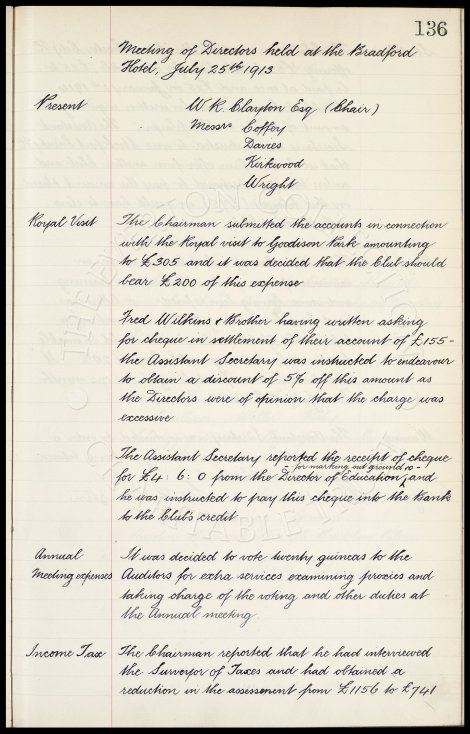 136
Meeting of Directors held at the Bradford
Hotel, July 25th 1913
Present W. R. Clayton Esq (Chair)
Messrs Coffey
Davies
Kirkwood
Wright
Royal Visit The Chairman submitted the accounts in connection
with the Royal visit to Goodison Park amounting
to £305 and it was decided that the Club should
bear £200 of this expense
Fred Wilkins & Brother having written asking
for cheque in settlement of their account of £155-
the Assistant Secretary was instructed to endeavour
to obtain a discount of 5% off this amount as
the Directors were of opinion that the charge was
excessive
The Assistant Secretary reported the receipt of cheque
- for marking out ground &c -
for £4: 6: 0 from the Director of Education, and
he was instructed to pay this cheque into the Bank
to the Club's credit
Annual It was decided to vote twenty guineas to the
Meeting expenses Auditors for extra services examining proxies and
taking charge of the voting and other duties at
the Annual meeting
Income Tax The Chairman reported that he had interviewed
the Surveyor of Taxes and had obtained a
reduction in the assessment from £1156 to £741